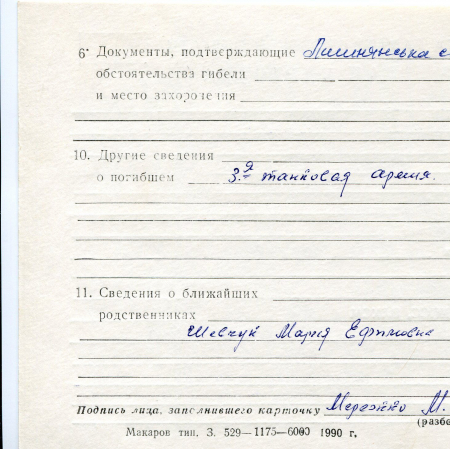 6· Документы, подтверждающие Лишнянська с
обстоятельства гибели
и место захоронения
10. Другие сведения
о погибшем 3-я танковая армия.
11. Сведения о ближайших
родственниках
Шевчук Мария Ефимовна
Подпись лица, заполнившего карточку М.
(разбо
Макаров тип. З. 529—1175—6000 1990 г.